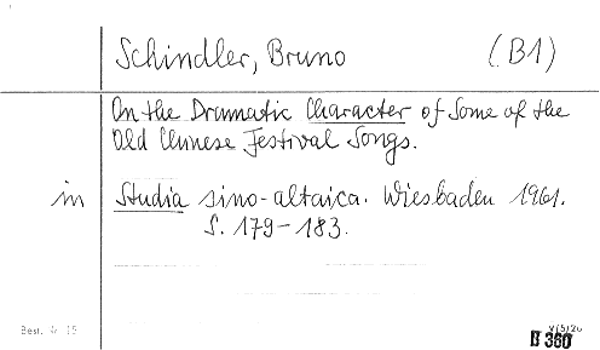 Schindler, Bruno (B1)
On the Dramatic Character of Some of the
Old Chinese Festival Songs.
in Studia sino-altaica. Wiesbaden 1961.
S. 179-183.
Best. 15
V(5)20
B 360